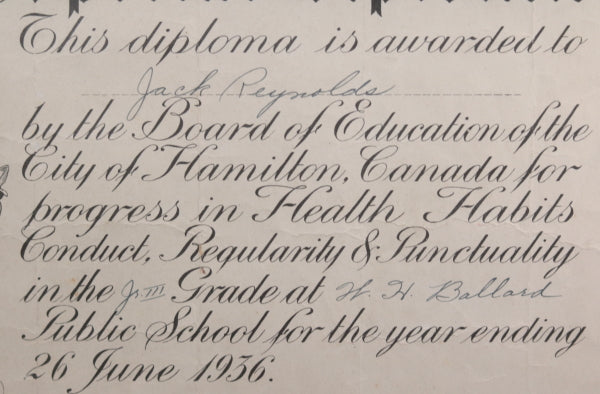 This diploma is awarded to
Jack Reynolds
by the Board of Education of the
City of Hamilton, Canada for
progress in Health Habits
Conduct, Regularity & Punctuality
in the Jr. III Grade at W. H. Ballard
Public School for the year ending
26 June 1936.